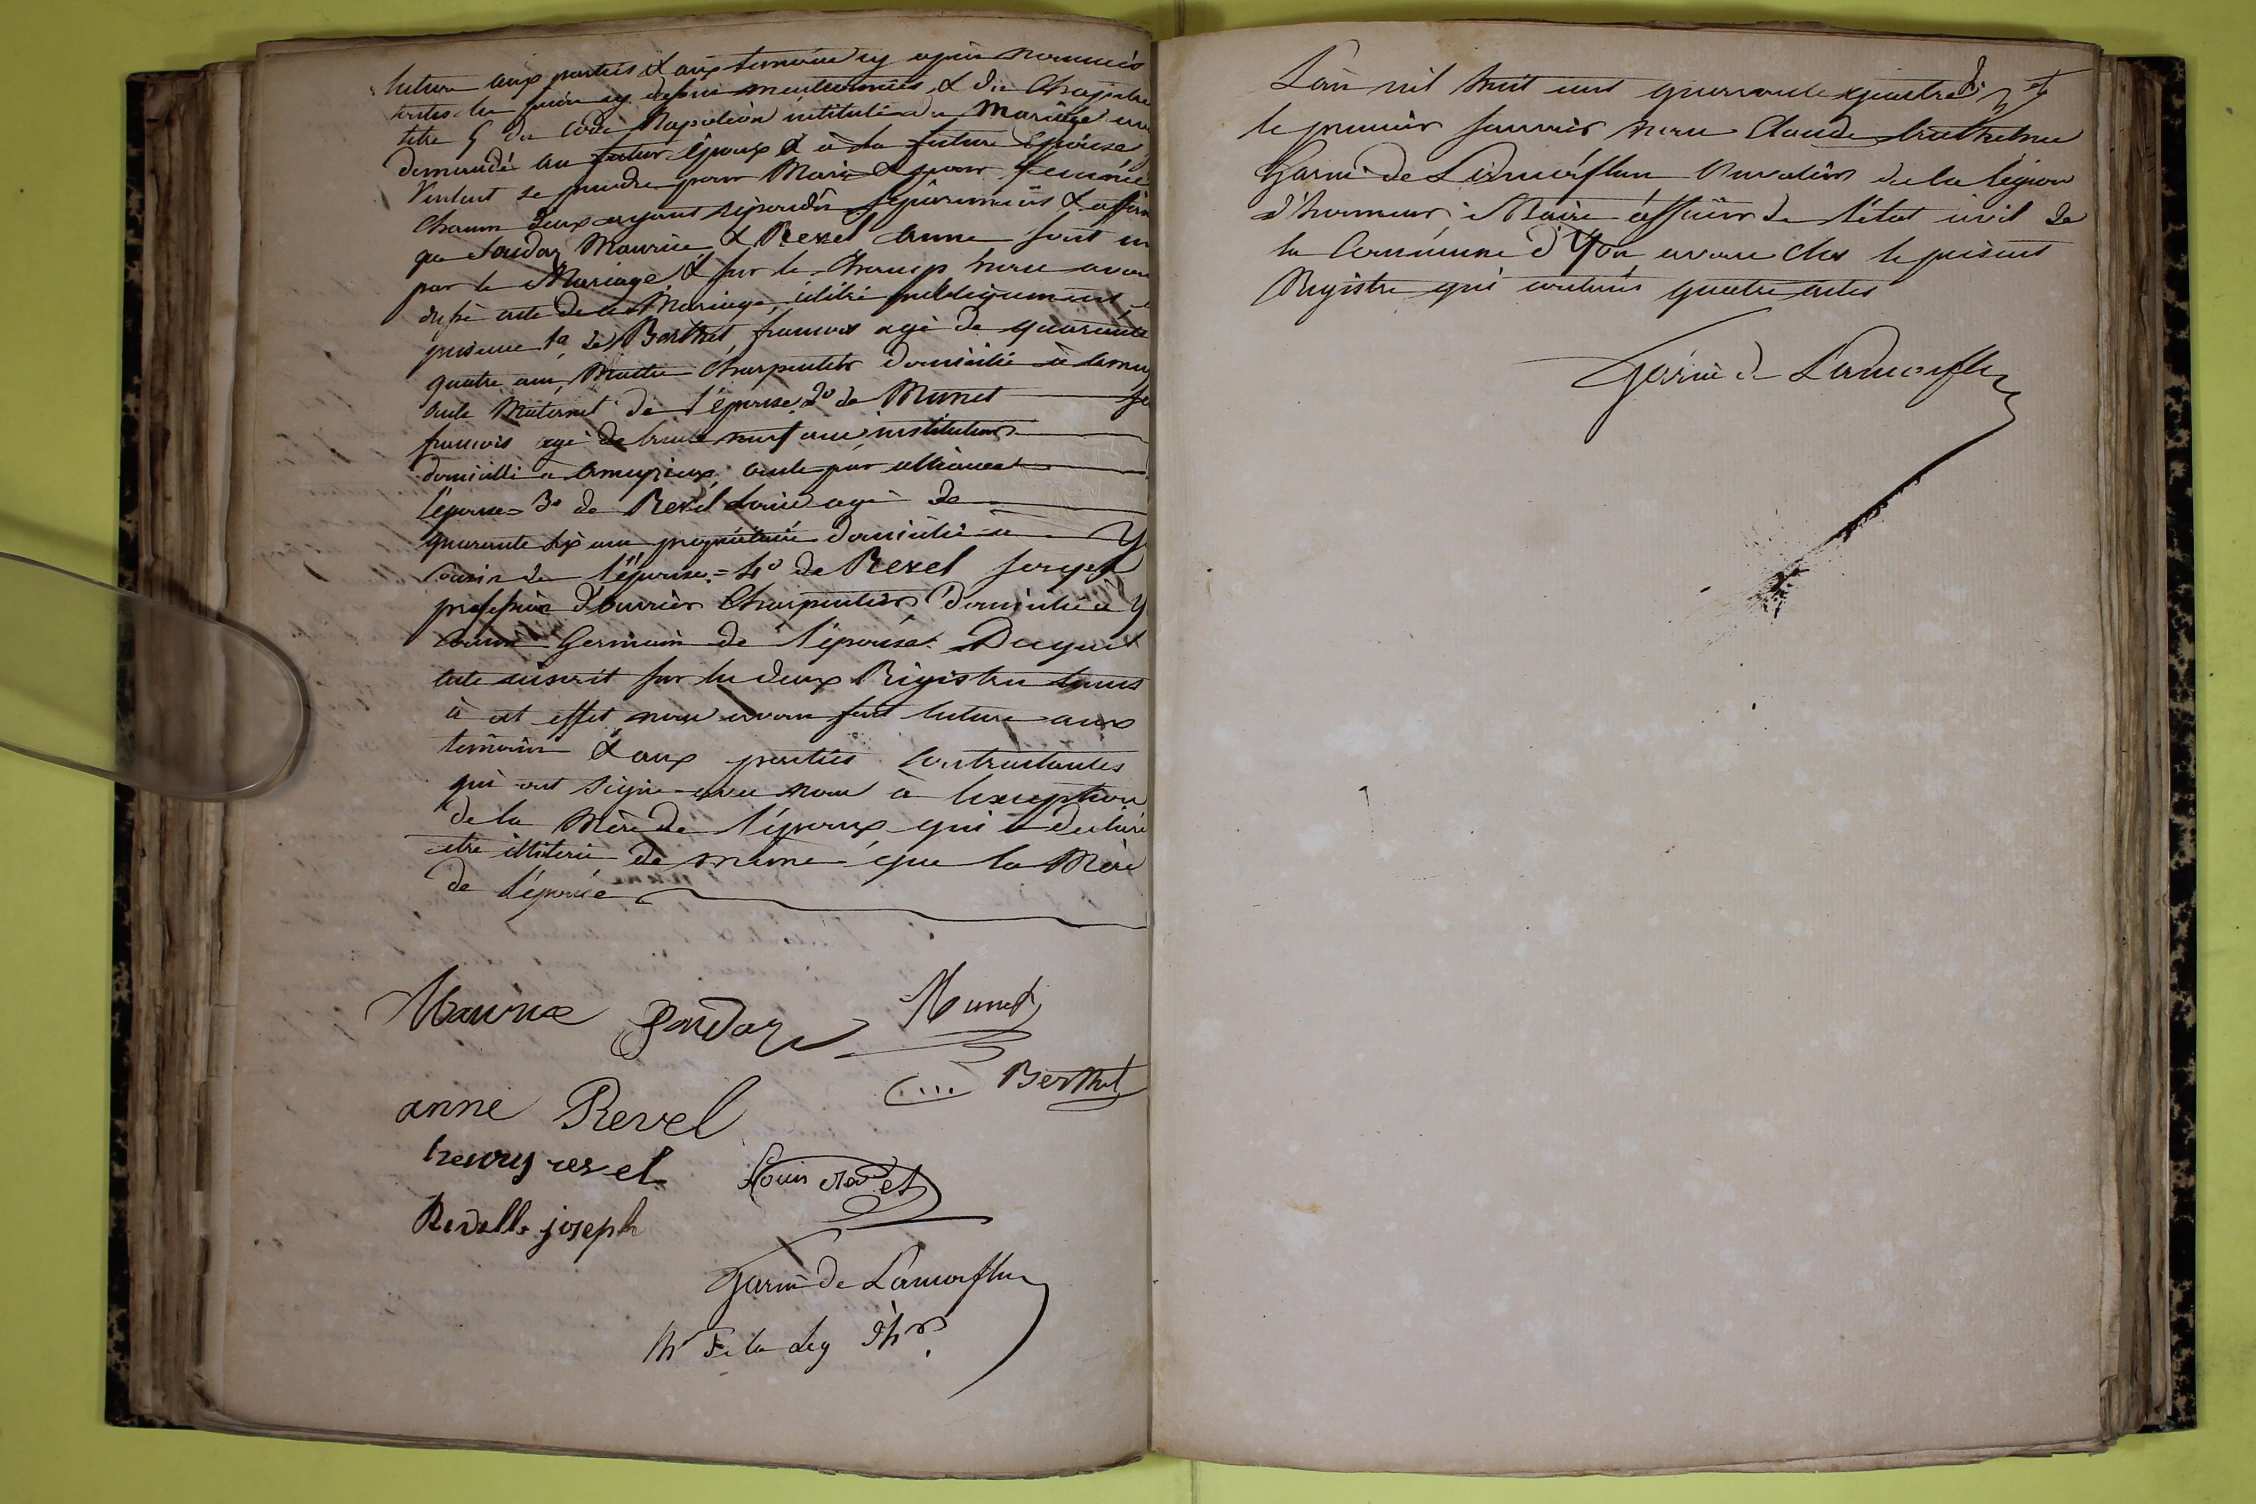 lecture aux parties & aux temoins cy après nommés
toutes les pièces cy dessus mentionnées, & du Chapitre
titre 5 du Code Napoléon intitulé du Mariage
demandé au futur époux & à la future épouse
Veulent se prendre pour Mari & pour femme
Chacun deux ayant répondu séparement &
que Soudaz Maurice & Revel Anne sont
par le Mariage, & sur le champ nous
acte de ce Mariage, célébré publiquement
presence 1º de Berthet françois agé de quarante
quatre ans, Maitre Charpentier domicilié à
oncle Maternel de l'épouse 2º de Munet
françois agé de trente neuf ans instituteur
domicilié à oncle par alliance
l'épouse = 3º de Revel Louis agé de
quarante six ans propriétaire domicilié à Y
cousin de l'épouse = 4º de Revel
profession d'ouvrier Charpentier domicilié à Y
cousin Germain de l'épouse. Duquel
acte inscrit sur les deux Registres tenus
à cet effet nous avons fait lecture aux
temoins & aux parties Contractantes
qui ont signé avec nous à l'exception
de la Mère de l'époux qui a declaré
etre illiterée de meme que la Mère
de l'épouse
Maurice Soudaz Munet
Berthet
anne Revel
henry revel Louis
Revelle joseph
Garin de Lamorflan
Ch^r De la Leg d'h^r
L'an mil huit cent quarante quatre &
le premier Janvier nous Claude Barthelmee
Garin de Lamorflan Chevalier de la légion
d'honneur Maire officier de l'état civil de
la Commune d'Yon avons clos le present
Registre qui contient quatre actes
Garin de Lamorflan